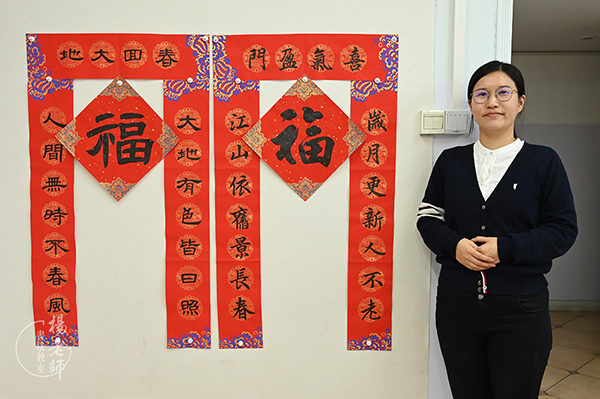 喜氣盈門
歲月更新人不老
江山依舊景長春
福
春回大地
大地有色皆日照
人間無時不春風
福
楊老師
書法教室